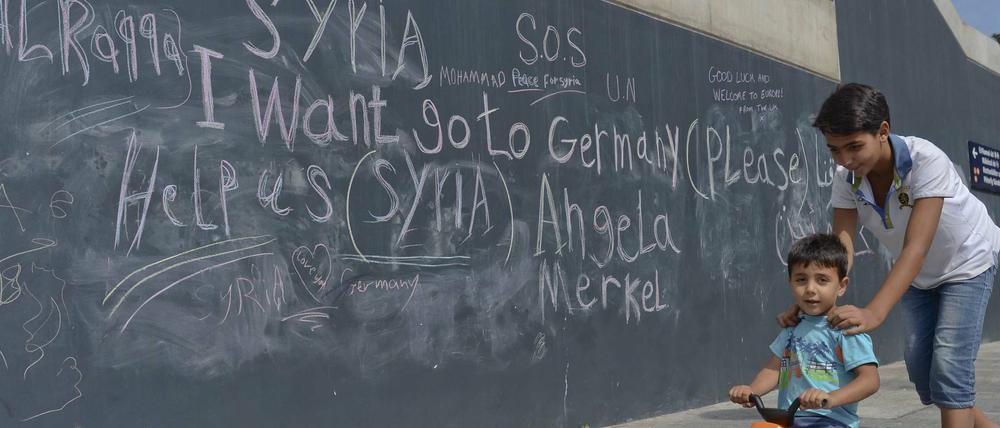 SYRIA
S.O.S
AL Raqqa
I Want go to Germany (Please)
MOHAMMAD Peace For syria
U.N
GOOD LUCK AND
WELCOME TO EUROPE!
FROM THE U.K
Help us (SYRIA)
Angela
Merkel
love you
Germany
SYRIA